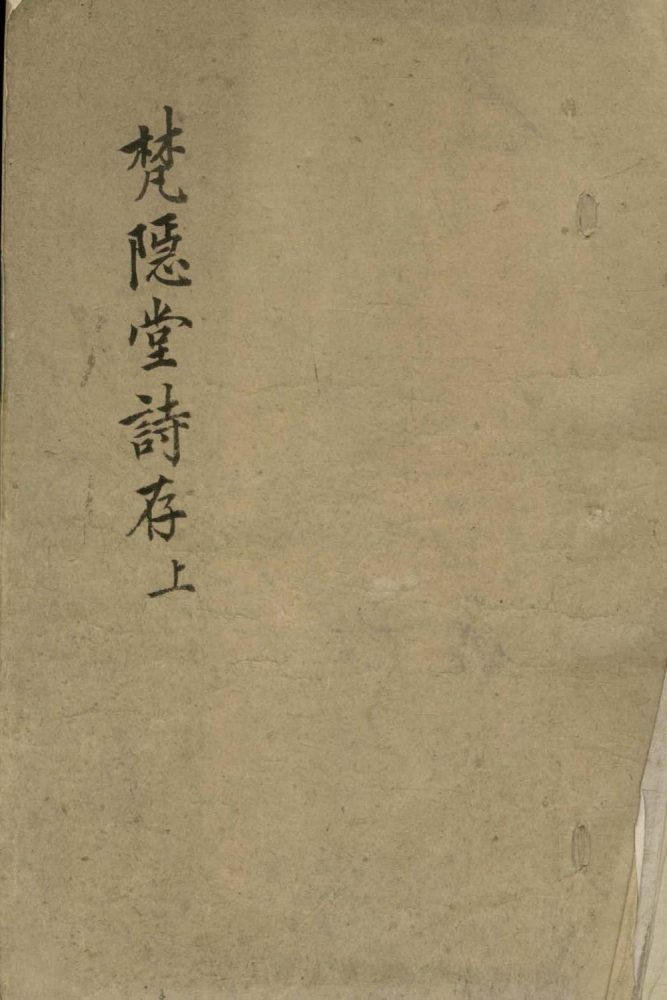 梵隱堂詩存上